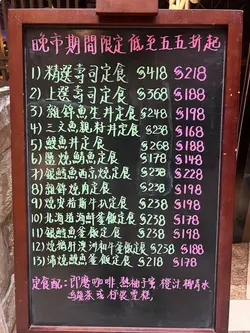 晚市期間限定 低至五五折起
1) 精選壽司定食 $418 $218
2) 上選壽司定食 $368 $188
3) 雜錦魚生丼定食 $248 $198
4) 三文魚親子丼定食 $238 $168
5) 鰻魚丼定食 $268 $188
6) 鹽燒鯖魚定食 $178 $148
7) 銀鱈魚西京燒定食 $238 $228
8) 雜錦燒肉定食 $238 $198
9) 燒安格斯牛扒定食 $238 $198
10) 北海道海鮮釜飯定食 $238 $198
11) 銀鱈魚釜飯定食 $238 $198
12) 燒 澳洲和牛釜飯定食 $238 $188
13) 燒鰻魚釜飯定食 $238 $178
定食配: 即磨咖啡 熱柚子蜜 橙汁 梳打水
綠茶 或